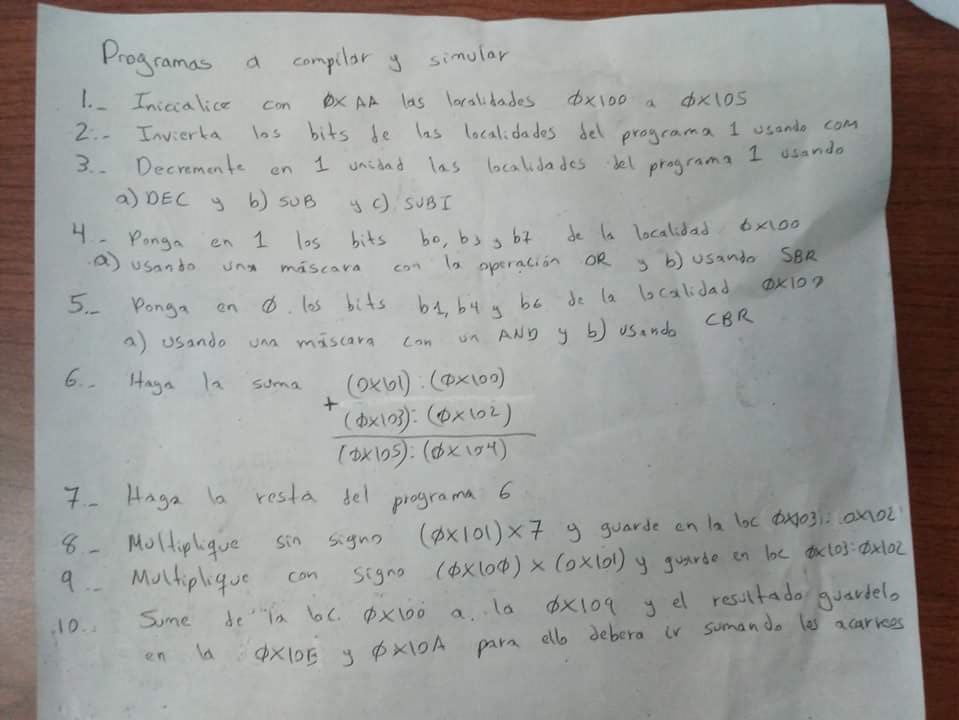 Programas a compilar y simular
1.- Inicialice con 0xAA las localidades 0x100 a 0x105
2.- Invierta los bits de las localidades del programa 1 usando COM
3.- Decremente en 1 unidad las localidades del programa 1 usando
a) DEC y b) SUB y c) SUBI
4.- Ponga en 1 los bits b0, b3 y b7 de la localidad 0x100
a) usando una máscara con la operación OR y b) usando SBR
5.- Ponga en 0 los bits b1, b4 y b6 de la localidad 0x100
a) usando una máscara con un AND y b) usando CBR
6.- Haga la suma (0x101):(0x100)
+ (0x103):(0x102)
(0x105):(0x104)
7.- Haga la resta del programa 6
8.- Multiplique sin signo (0x101)x7 y guarde en la loc 0x103:0x102
9.- Multiplique con signo (0x100)x(0x101) y guarde en loc 0x103:0x102
10.- Sume de la loc. 0x100 a la 0x109 y el resultado guardelo
en la 0x10B y 0x10A para ello debera ir sumando los acarreos